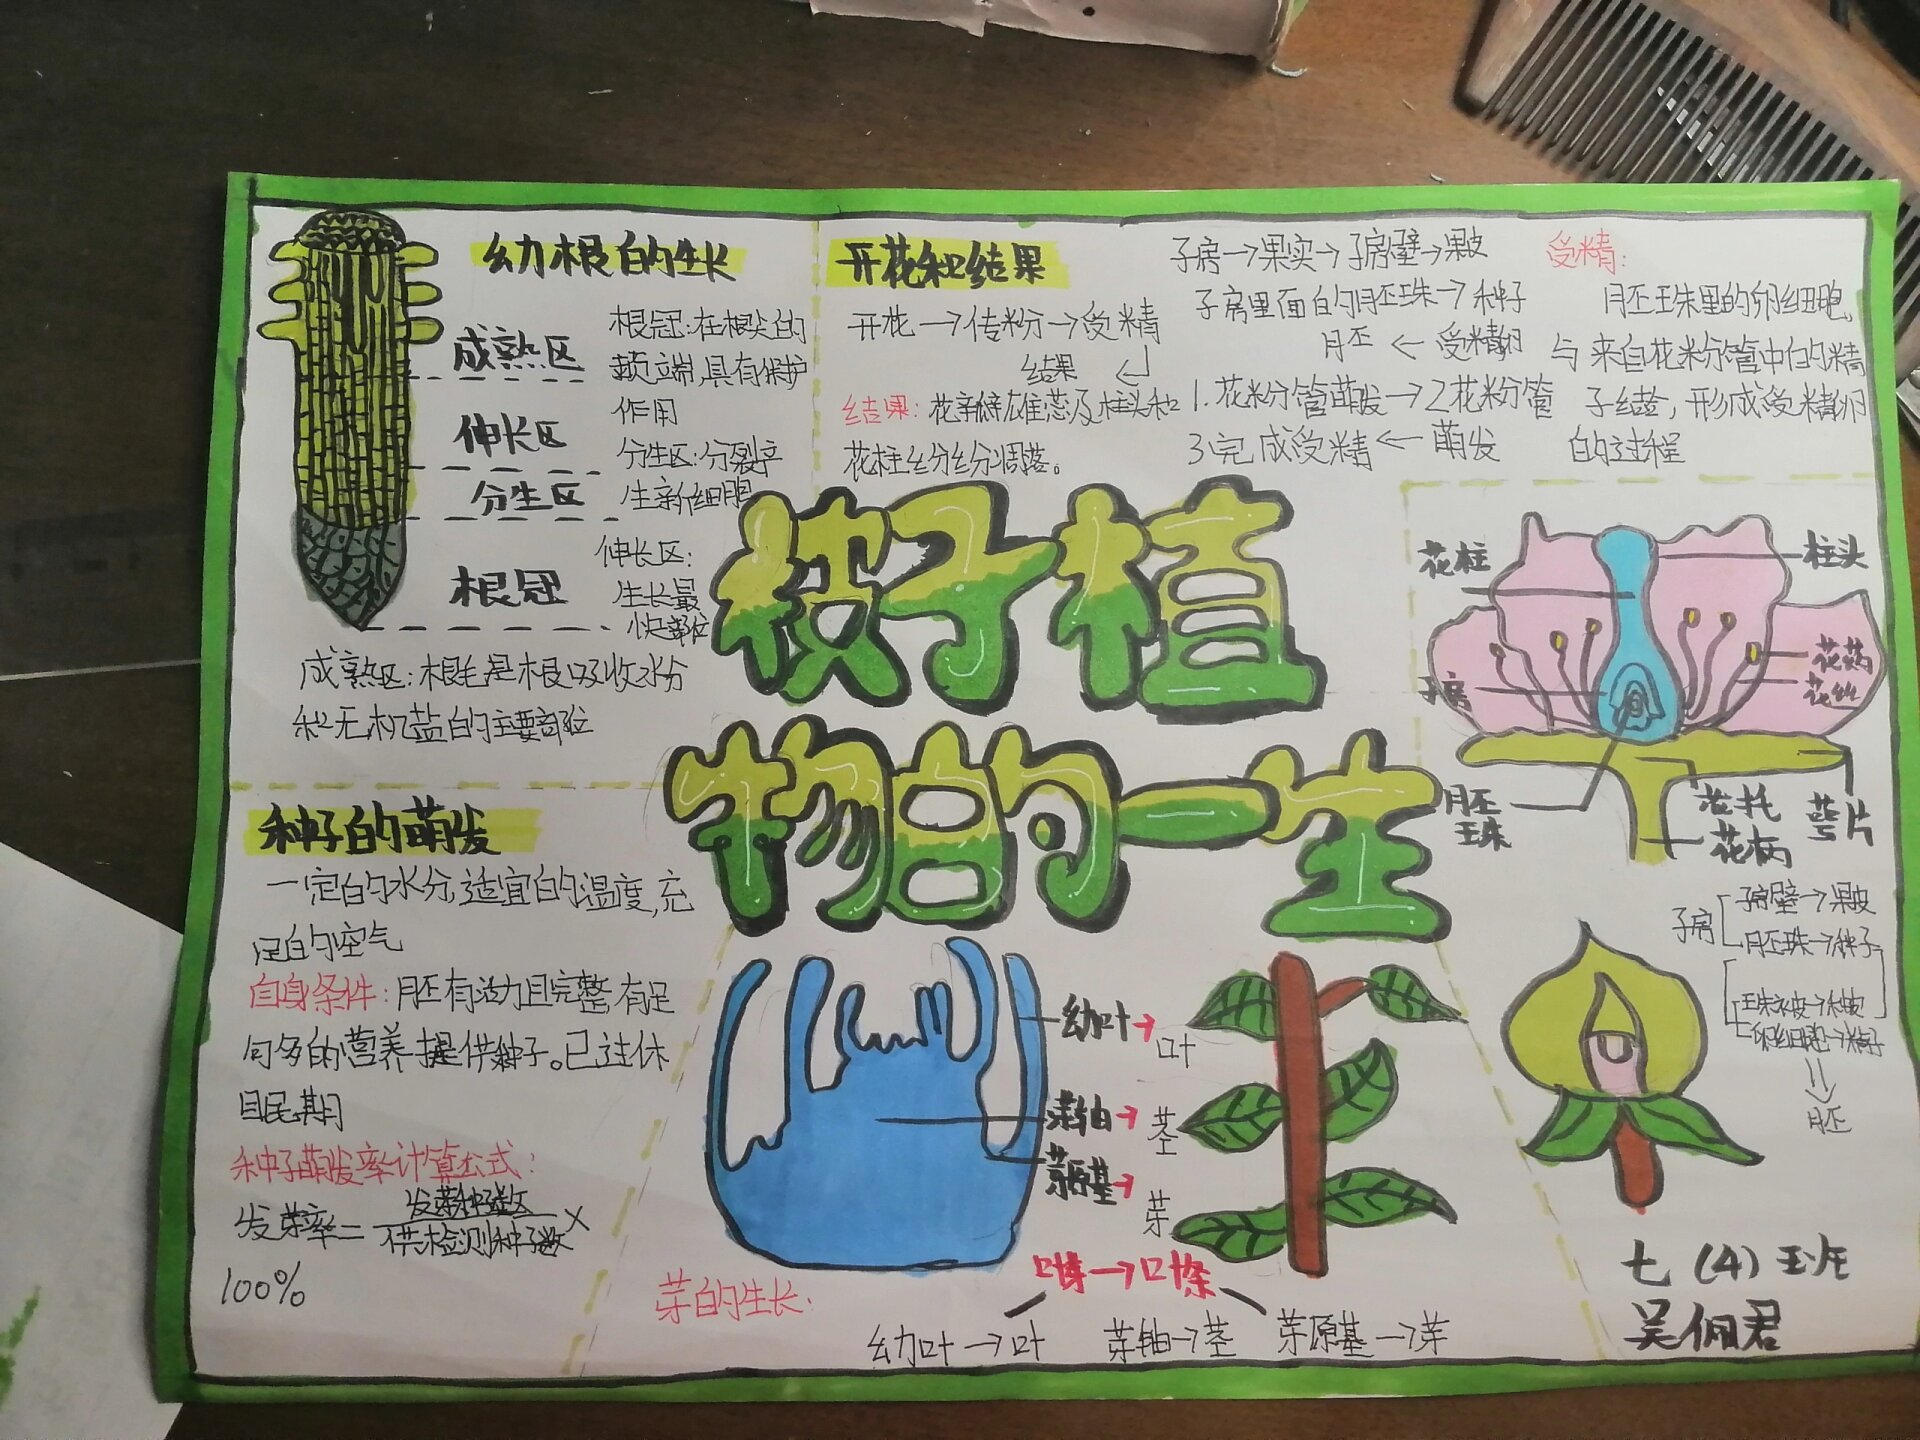 幼根的生长
成熟区
伸长区
分生区
根冠
根冠:在根尖的
顶端,具有保护
作用
分生区:分裂产
生新细胞
伸长区:
生长最
快部位
成熟区:根毛是根吸收水分
和无机盐的主要部位
开花和结果
开花→传粉→受精
结果
结果:花瓣雄蕊及柱头和
花柱纷纷凋落。
子房→果实→子房壁→果皮
子房里面的胚珠→种子
胚←受精卵
1.花粉管萌发→2花粉管
3完成受精←萌发
受精:
胚珠里的卵细胞,
与来自花粉管中的精
子结合,形成受精卵
的过程
被子植
物的一生
花柱
柱头
花药
花丝
子房
胚
珠
花托
花柄
萼片
种子的萌发
一定的水分,适宜的温度,充
足的空气
自身条件:胚有活力且完整,有足
够多的营养提供种子。已过休
眠期
种子萌发率计算公式:
发芽率=发芽种子数/供检测种子数×
100%
幼叶→叶
芽轴→茎
芽原基→芽
芽的生长:
幼叶→叶 芽轴→茎 芽原基→芽
子房
子房壁→果皮
胚珠→种子
珠被→种皮
⇓
胚
七(4)班
吴佩君